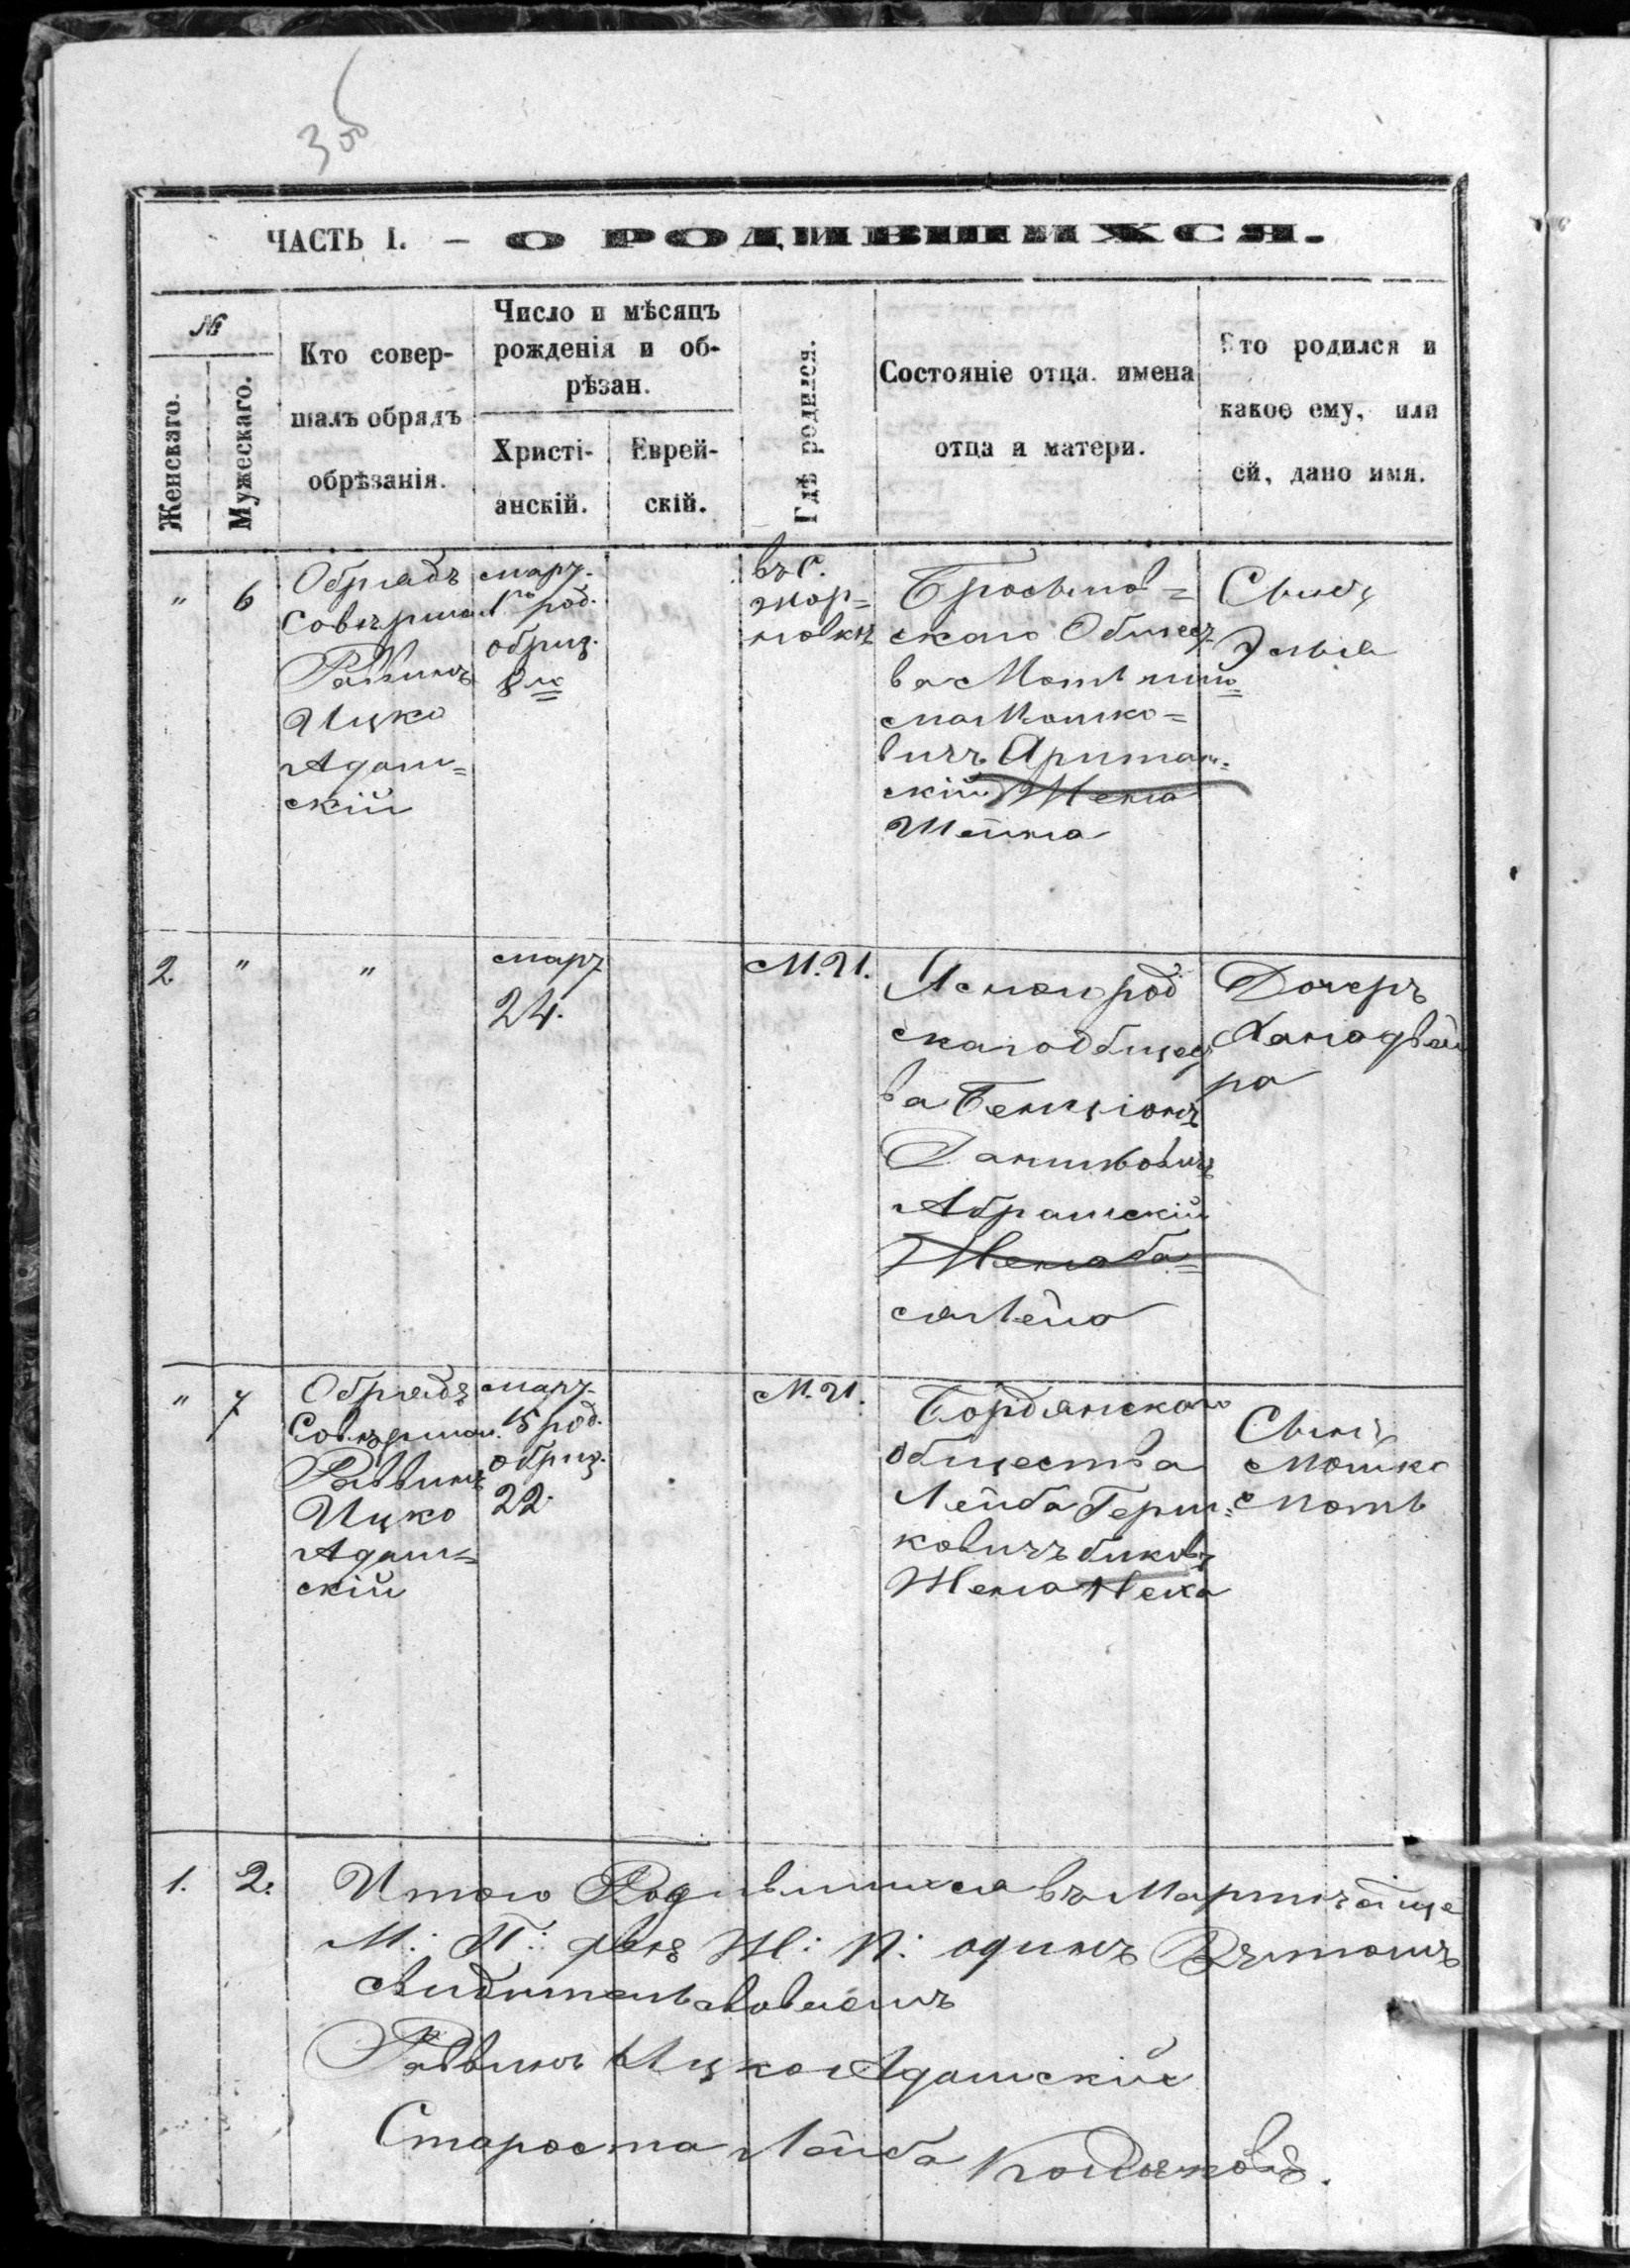 3 об
ЧАСТЬ I. — О РОДИВШИХСЯ.
№
Женскаго.
Мужескаго.
Кто совер-
шалъ обрядъ
обрѣзанія.
Число и мѣсяцъ
рожденія и об-
рѣзан.
Христі-
анскій.
Еврей-
скій.
Гдѣ родился.
Состояніе отца. имена
отца и матери.
Кто родился и
какое ему, или
ей, дано имя.
" 6
Обрядъ
Совершал
Раввинъ
Ицко
Адам=
скій
март.
1го род.
обриз.
8го
въ С.
=
скаго Общест
ва Мот
Мошко=
вичъ
скій Жена
Шейна
Сынъ
2 " "
март
24.
М. И.
род
скаго общест
ва Бенціонъ
Даниловичъ
Абрамскій
Жена Ба=
ся Лея
Дочерь
Хана Двей
ра
" 7
Обрядъ
Совершал.
Раввинъ
Ицко
Адам=
скій
март.
15 род.
обриз.
22.
М. И.
общества
Лейба Герш=
ковичъ Биковъ
Жена Неха
Сынъ
Мошко
Мот
1. 2.
Итого Родившихся въ Март
М: П: два Ж: П: одинъ Въ томъ
Раввинъ Ицко Адамскій
Староста Лейба